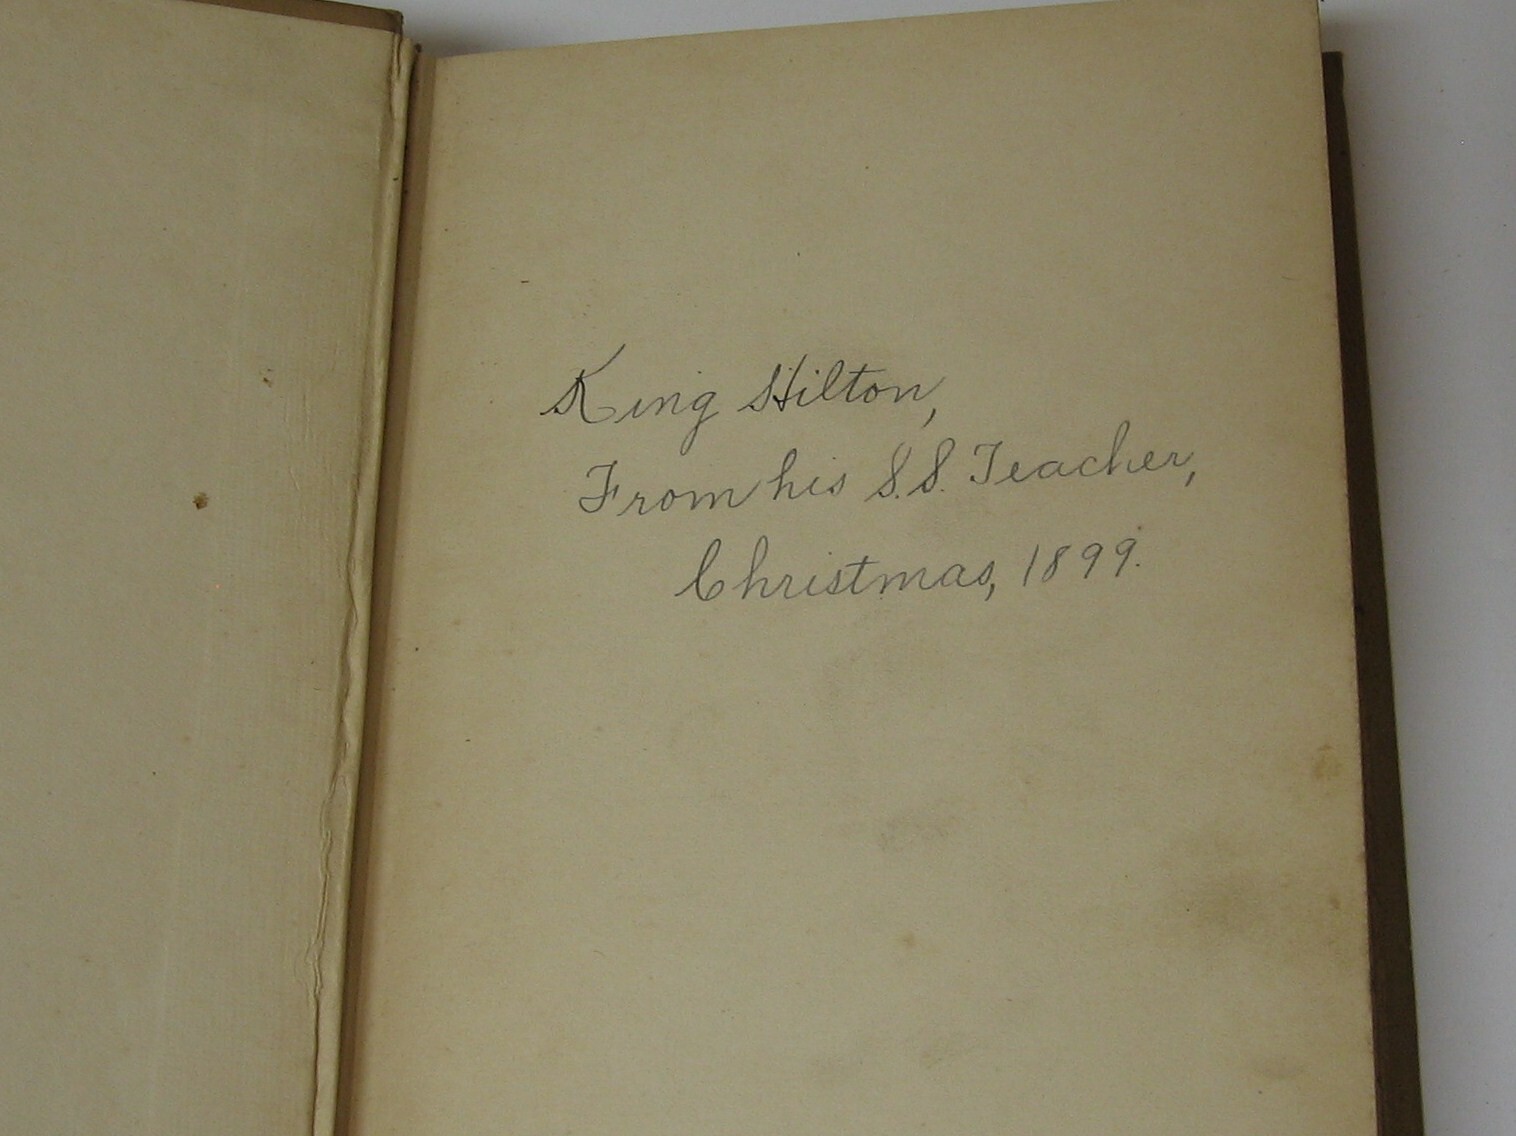 King Hilton,
From his S.S. Teacher,
Christmas, 1899.